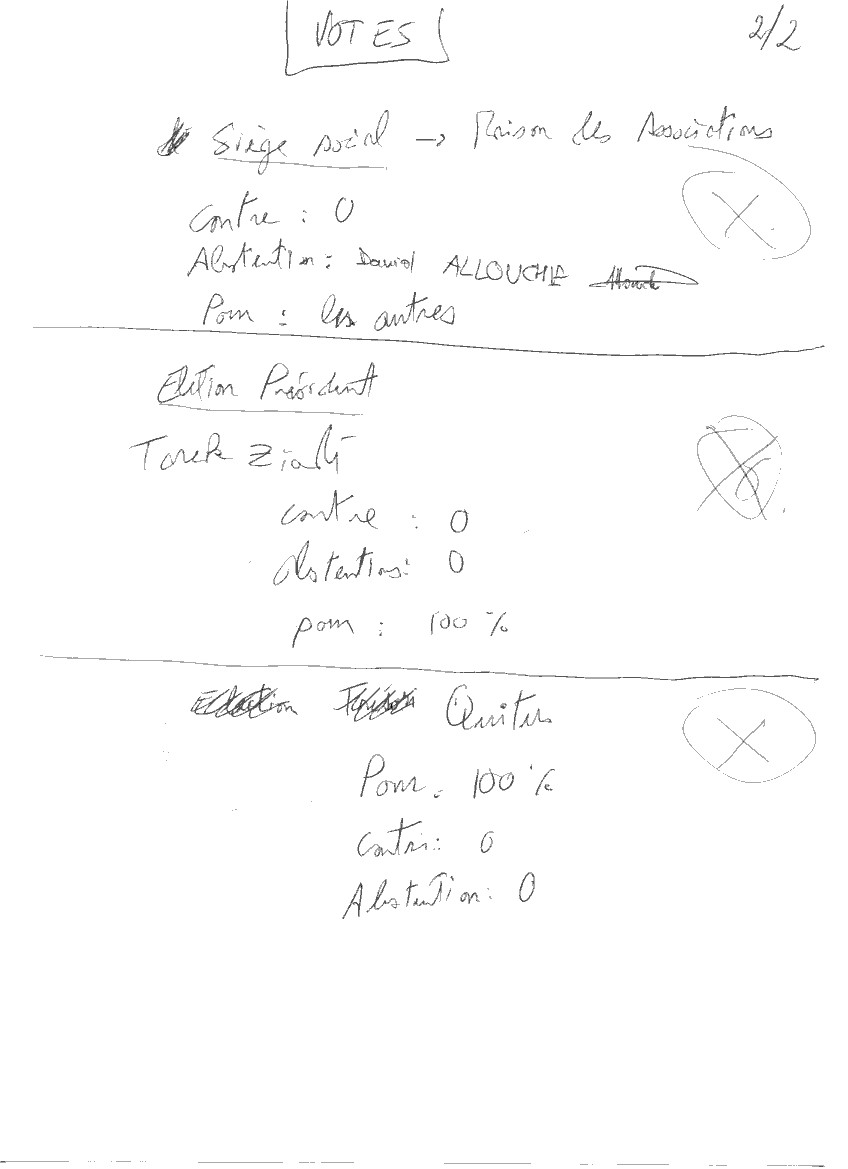 VOTES
2/2
Siège social → Maison des Associations
Contre : 0
Abstention : David ALLOUCHE
Pour : les autres
Election Président
Tarek
contre : 0
abstentions : 0
pour : 100 %
Quitus
Pour : 100 %
Contre : 0
Abstention : 0